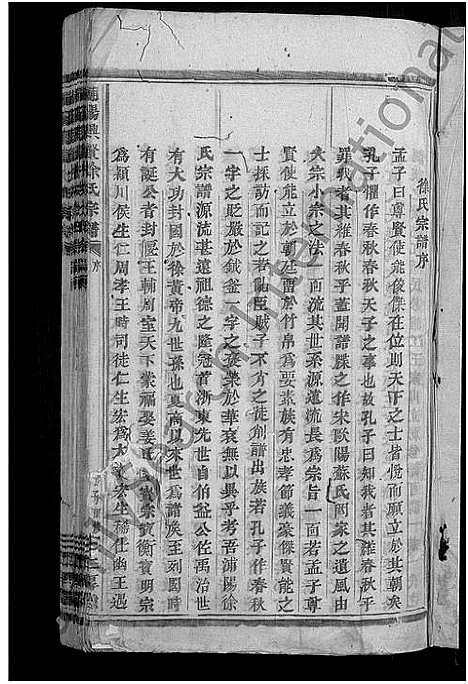 徐氏宗譜序
孟子曰尊賢使能俊傑在位則天下之士皆悅而願立於其朝矣
孔子懼作春秋春秋天子之事也故孔子曰知我者其維春秋乎
罪我者其維春秋乎蓋開譜牒之作宋歐陽蘇氏兩家之遺風由
大宗小宗之法一面流其世系源遠流長為宗旨一面若孟子尊
賢使能立於朝廷畱於竹帛為要素族有忠孝節義豪傑賢能之
士採訪而記之若亂臣賊子不方之徒削譜出族若孔子作春秋
一字之貶嚴於鈇鉞一字之褒榮於華袞無以異乎考吾浦陽徐
氏宗譜源流甚遠祖德之隆冠首浙東先世自伯益公佐禹治世
有大功封國於徐黃帝九世孫也夏商以來世為諸侯至列國時
有誕公者封偃王輔周室天下蒙福娶姜氏生寶宗寶衡寶明宗
為潁川侯生仁周孝王時司徒仁生宏為大 宏生 仕幽王遇
浦陽興賢徐氏宗譜
序